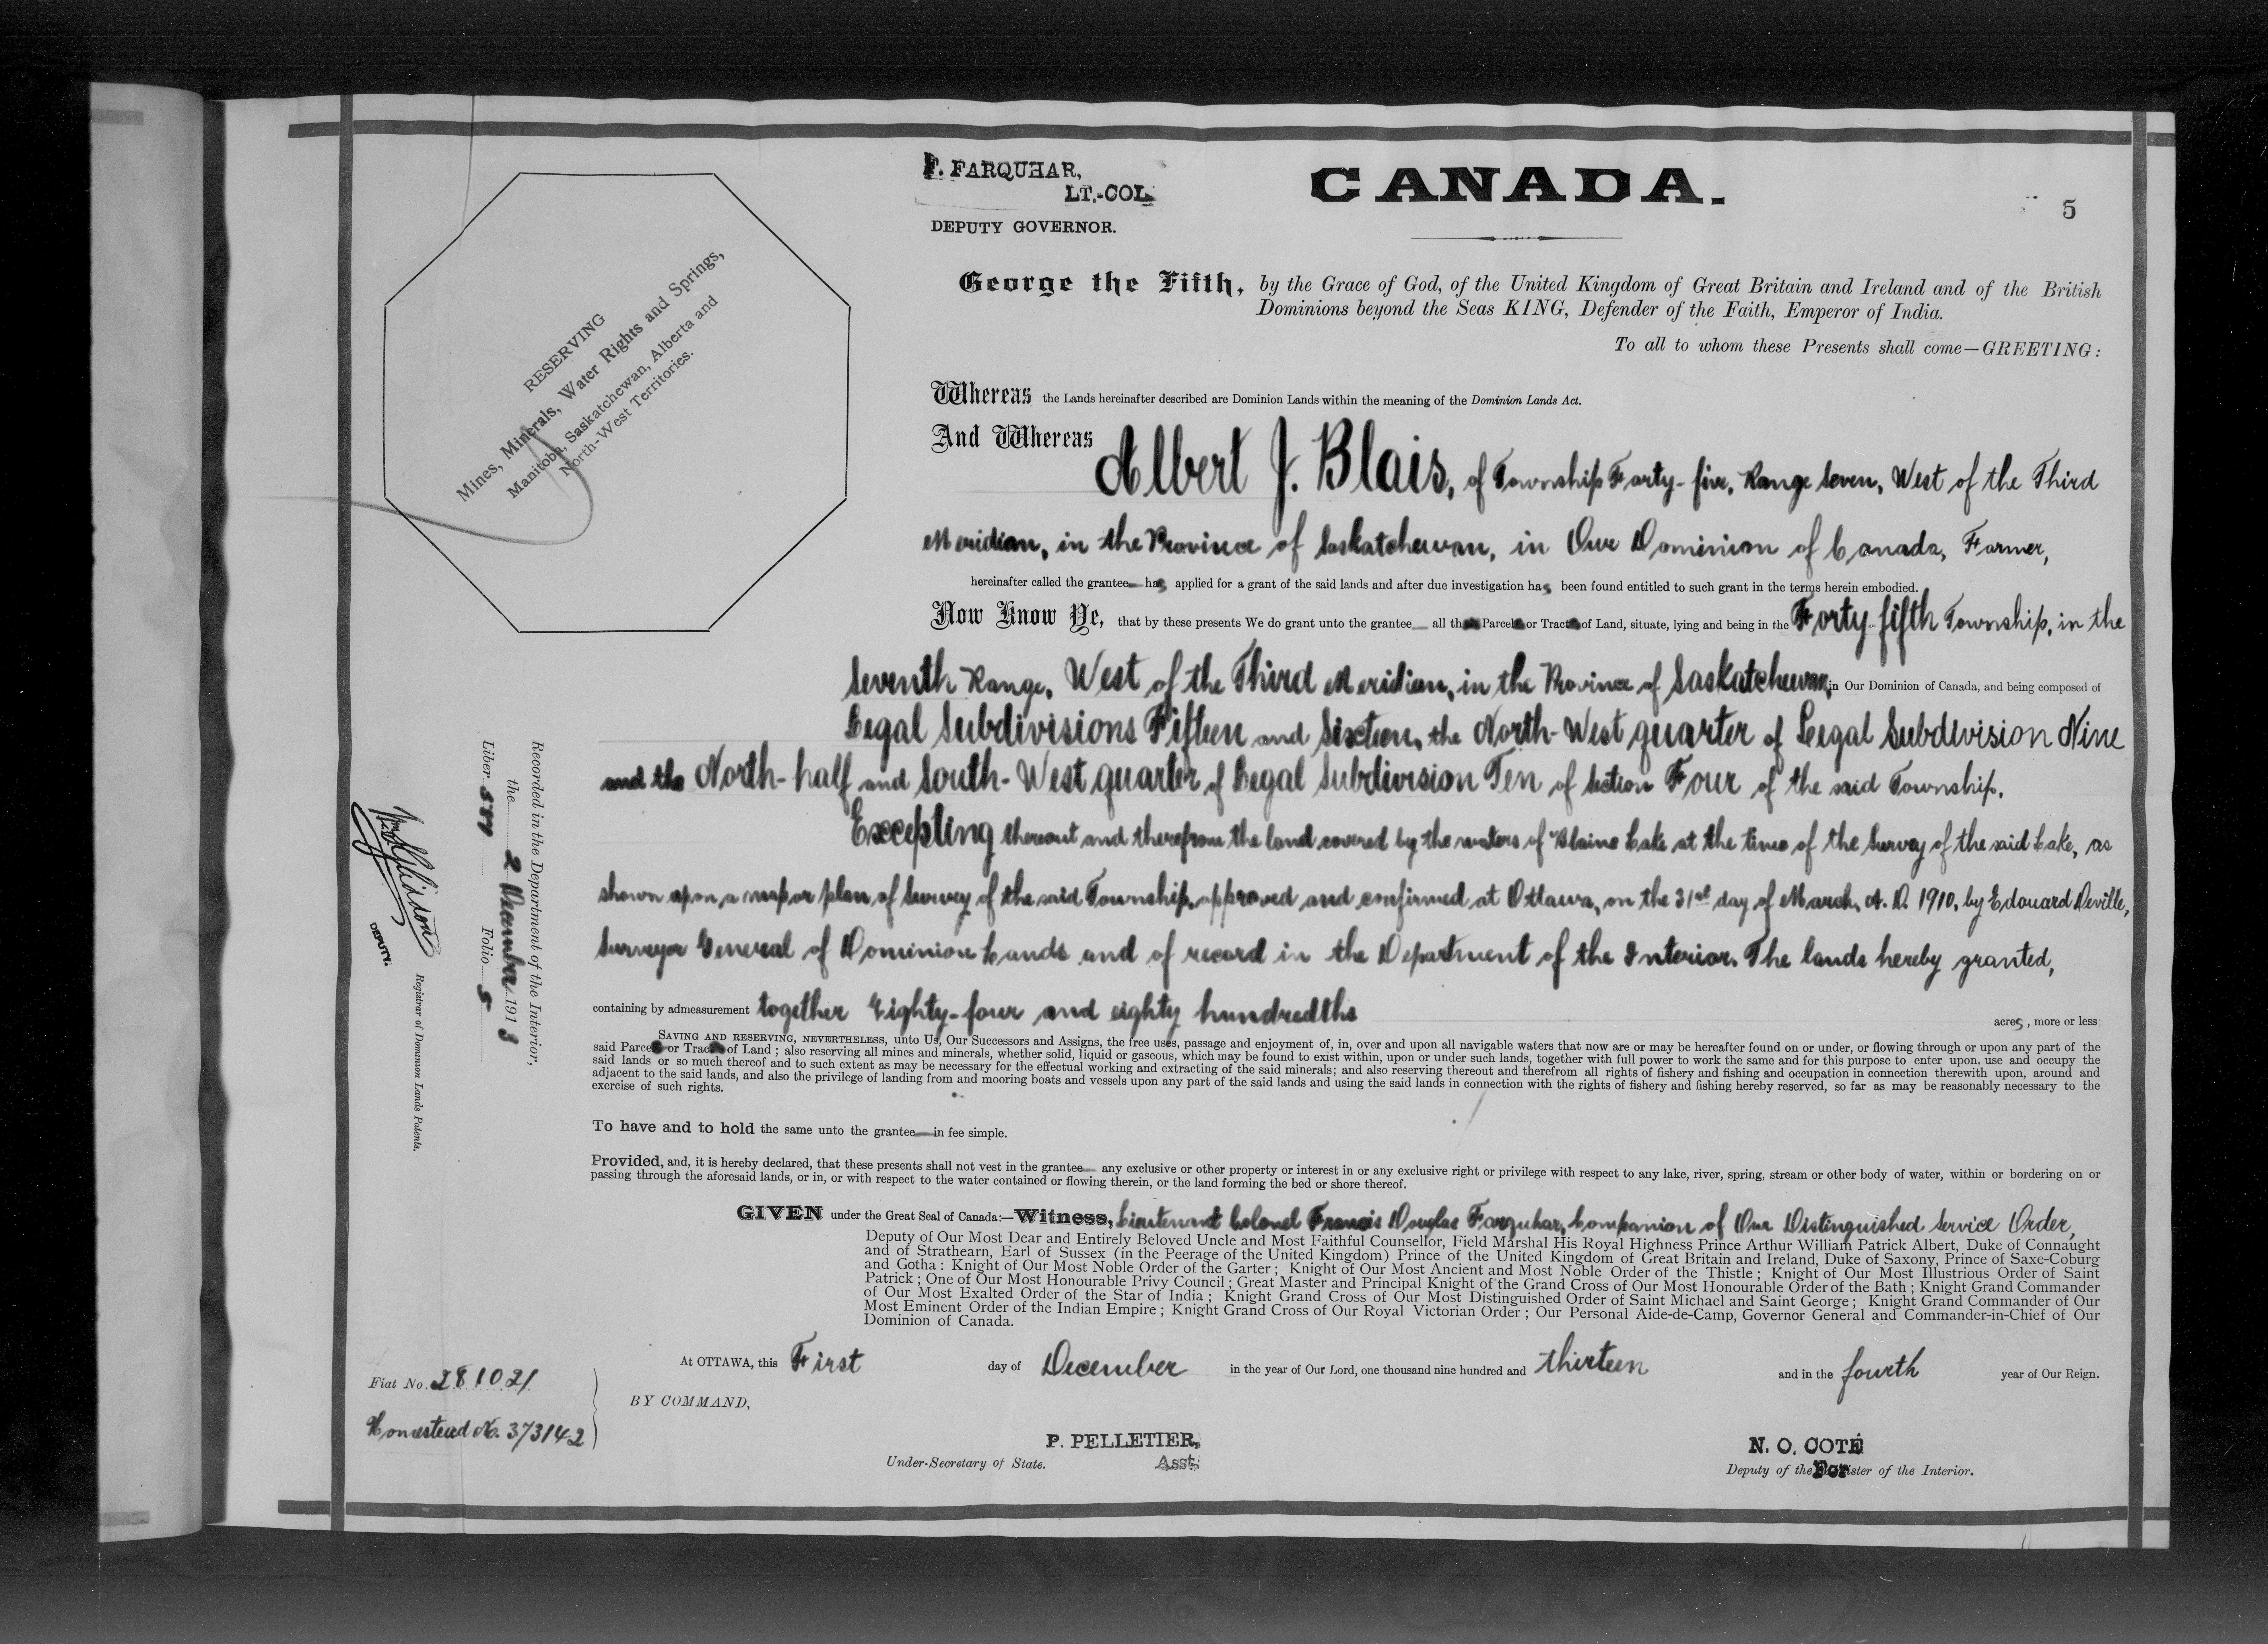 F. FARQUHAR,
LT.-COL.
DEPUTY GOVERNOR.
CANADA.
5
RESERVING
Mines, Minerals, Water Rights and Springs,
Manitoba, Saskatchewan, Alberta and
North-West Territories.
George the Fifth, by the Grace of God, of the United Kingdom of Great Britain and Ireland and of the British
Dominions beyond the Seas KING, Defender of the Faith, Emperor of India.
To all to whom these Presents shall come—GREETING:
Whereas the Lands hereinafter described are Dominion Lands within the meaning of the Dominion Lands Act.
And Whereas Albert J. Blais, of Township Forty-five, Range Seven, West of the Third
Meridian, in the Province of Saskatchewan, in Our Dominion of Canada, Farmer,
hereinafter called the grantee has applied for a grant of the said lands and after due investigation has been found entitled to such grant in the terms herein embodied.
Now Know Ye, that by these presents We do grant unto the grantee all th Parcel or Tract of Land, situate, lying and being in the Forty-fifth Township, in the
Seventh Range, West of the Third Meridian, in the Province of Saskatchewan, in Our Dominion of Canada, and being composed of
Legal Subdivisions Fifteen and Sixteen, the North-West quarter of Legal Subdivision Nine
and the North-half and South-West quarter of Legal Subdivision Ten of Section Four of the said Township.
Excepting thereout and therefrom the land covered by the waters of Blaine Lake at the time of the Survey of the said Lake, as
shown upon a map or plan of Survey of the said Township, approved and confirmed at Ottawa, on the 31st day of March, A. D. 1910, by Edouard Deville,
Surveyor General of Dominion Lands and of record in the Department of the Interior. The lands hereby granted,
containing by admeasurement together Eighty-four and eighty hundredths acres, more or less;
SAVING AND RESERVING, NEVERTHELESS, unto Us, Our Successors and Assigns, the free uses, passage and enjoyment of, in, over and upon all navigable waters that now are or may be hereafter found on or under, or flowing through or upon any part of the
said Parcel or Tract of Land; also reserving all mines and minerals, whether solid, liquid or gaseous, which may be found to exist within, upon or under such lands, together with full power to work the same and for this purpose to enter upon, use and occupy the
said lands or so much thereof and to such extent as may be necessary for the effectual working and extracting of the said minerals; and also reserving thereout and therefrom all rights of fishery and fishing and occupation in connection therewith upon, around and
adjacent to the said lands, and also the privilege of landing from and mooring boats and vessels upon any part of the said lands and using the said lands in connection with the rights of fishery and fishing hereby reserved, so far as may be reasonably necessary to the
exercise of such rights.
To have and to hold the same unto the grantee in fee simple.
Provided, and, it is hereby declared, that these presents shall not vest in the grantee any exclusive or other property or interest in or any exclusive right or privilege with respect to any lake, river, spring, stream or other body of water, within or bordering on or
passing through the aforesaid lands, or in, or with respect to the water contained or flowing therein, or the land forming the bed or shore thereof.
GIVEN under the Great Seal of Canada:—Witness, Lieutenant Colonel Francis Douglas Farquhar, Companion of Our Distinguished Service Order,
Deputy of Our Most Dear and Entirely Beloved Uncle and Most Faithful Counsellor, Field Marshal His Royal Highness Prince Arthur William Patrick Albert, Duke of Connaught
and of Strathearn, Earl of Sussex (in the Peerage of the United Kingdom) Prince of the United Kingdom of Great Britain and Ireland, Duke of Saxony, Prince of Saxe-Coburg
and Gotha: Knight of Our Most Noble Order of the Garter; Knight of Our Most Ancient and Most Noble Order of the Thistle; Knight of Our Most Illustrious Order of Saint
Patrick; One of Our Most Honourable Privy Council; Great Master and Principal Knight of the Grand Cross of Our Most Honourable Order of the Bath; Knight Grand Commander
of Our Most Exalted Order of the Star of India; Knight Grand Cross of Our Most Distinguished Order of Saint Michael and Saint George; Knight Grand Commander of Our
Most Eminent Order of the Indian Empire; Knight Grand Cross of Our Royal Victorian Order; Our Personal Aide-de-Camp, Governor General and Commander-in-Chief of Our
Dominion of Canada.
At OTTAWA, this First day of December in the year of Our Lord, one thousand nine hundred and thirteen and in the fourth year of Our Reign.
BY COMMAND,
P. PELLETIER,
Under-Secretary of State. Asst.
N. O. COTÉ
Deputy of the For ister of the Interior.
Fiat No. 281021
Homestead No. 373142
Recorded in the Department of the Interior,
the 2 December 1913
Liber Folio 5
DEPUTY.
Registrar of Dominion Lands Patents.